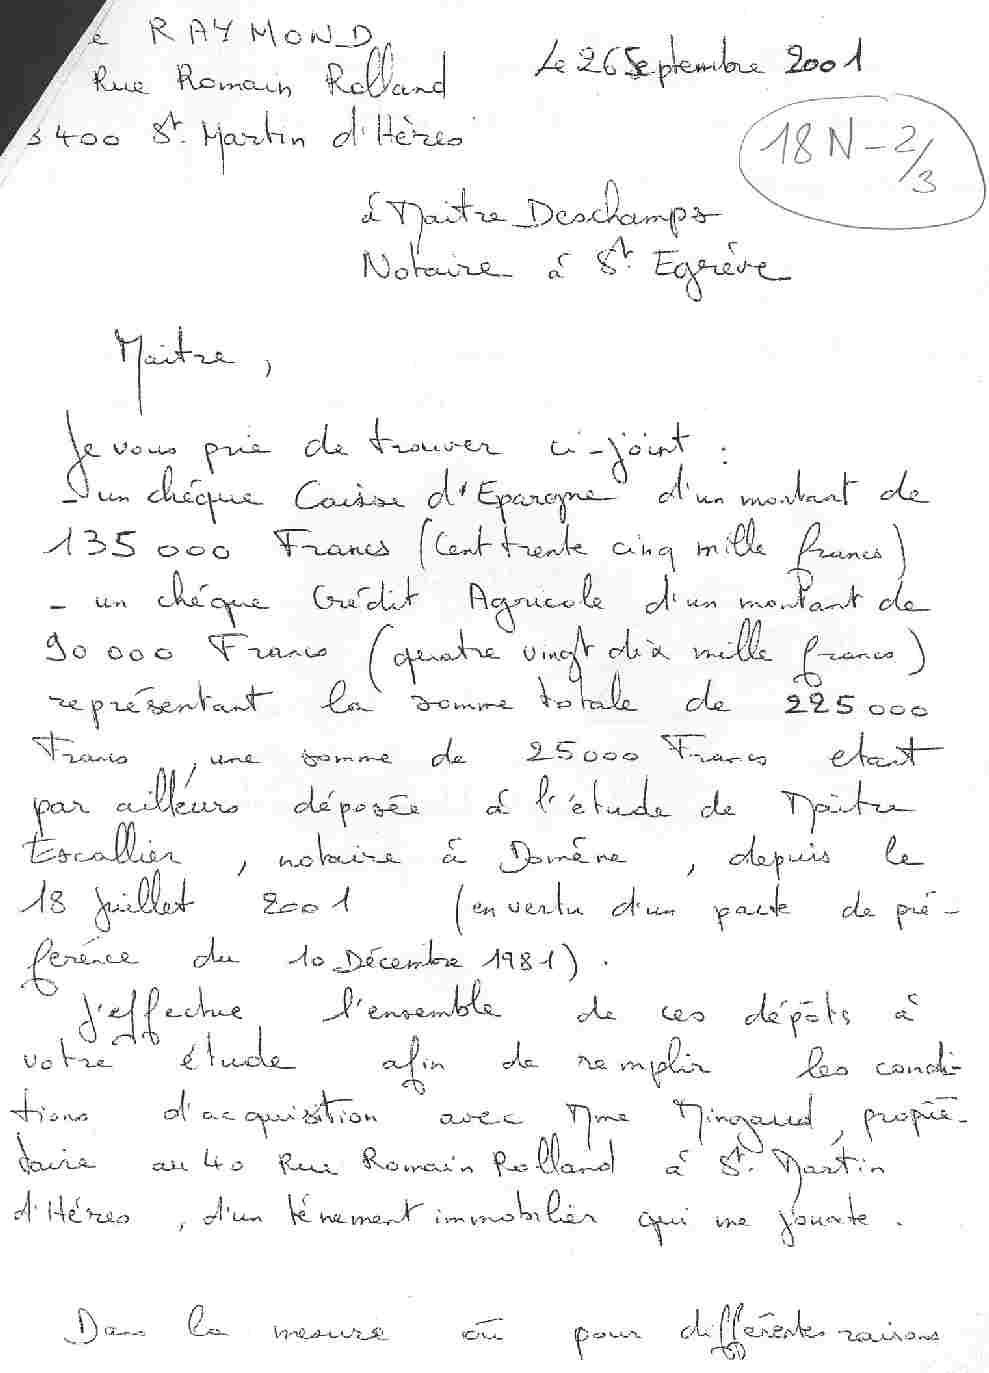 e RAYMOND
Le 26 Septembre 2001
Rue Romain Rolland
400 St. Martin d'Hères
18 N - 2/3
à Maitre Deschamps
Notaire à St. Egrève
Maitre,
Je vous prie de trouver ci-joint :
- un chéque Caisse d'Epargne d'un montant de
135 000 Francs (Cent trente cinq mille francs)
- un chéque Crédit Agricole d'un montant de
90 000 Francs (quatre vingt dix mille francs)
représentant la somme totale de 225 000
Francs, une somme de 25 000 Francs etant
par ailleurs déposée à l'étude de Maître
Escallier, notaire à Domène, depuis le
18 Juillet 2001 (en vertu d'un pacte de pré-
férence du 10 Décembre 1981).
J'effectue l'ensemble de ces dépôts à
votre étude afin de remplir les condi-
tions d'acquisition avec Mme Mingaud, proprié-
taire au 40 Rue Romain Rolland à St. Martin
d'Héres, d'un ténement immobilier qui me jouxte.
Dans la mesure où pour différentes raisons